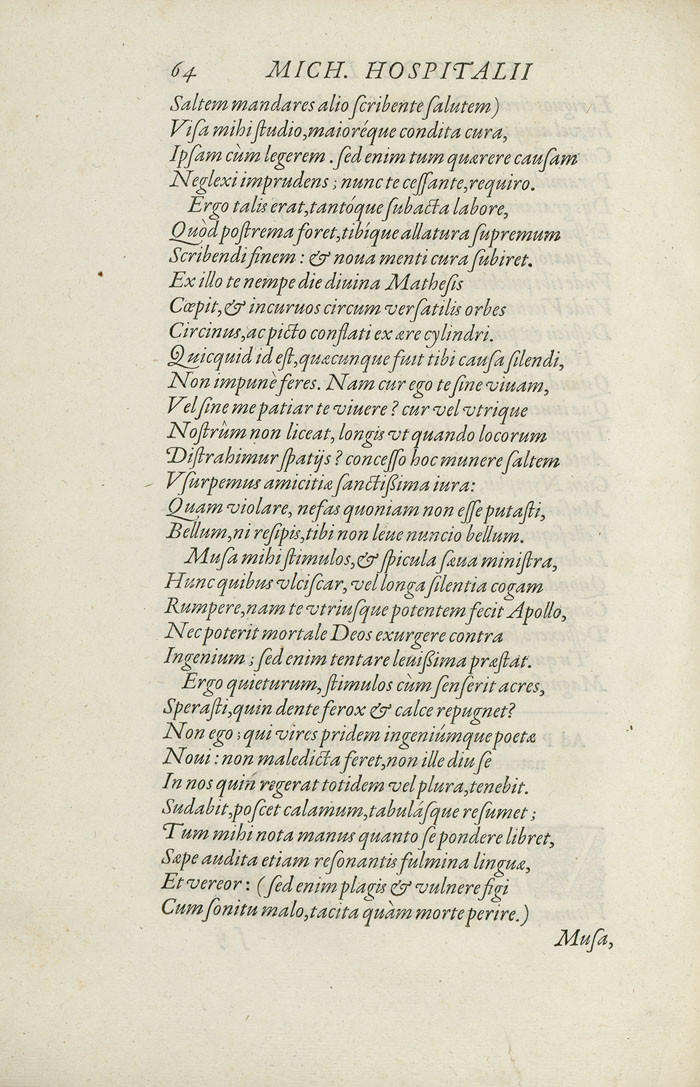 64 MICH. HOSPITALII
Saltem mandares alio ſcribente ſalutem)
Viſa mihi ſtudio, maioréque condita cura,
Ipſam cùm legerem. ſed enim tum quærere cauſam
Neglexi imprudens; nunc te ceſſante, requiro.
Ergo talis erat, tantóque ſubacta labore,
Quòd poſtrema foret, tibíque allatura ſupremum
Scribendi finem: & noua menti cura ſubiret.
Ex illo te nempe die diuina Matheſis
Cœpit, & incuruos circum verſatilis orbes
Circinus, ac picto conflati ex ære cylindri.
Quicquid id eſt, quæcunque fuit tibi cauſa ſilendi,
Non impunè feres. Nam cur ego te ſine viuam,
Vel ſine me patiar te viuere? cur vel vtrique
Noſtrûm non liceat, longis vt quando locorum
Diſtrahimur ſpatijs? conceſſo hoc munere ſaltem
Vſurpemus amicitiæ ſanctißima iura:
Quam violare, nefas quoniam non eſſe putaſti,
Bellum, ni reſipis, tibi non leue nuncio bellum.
Muſa mihi ſtimulos, & ſpicula ſæua miniſtra,
Hunc quibus vlciſcar, vel longa ſilentia cogam
Rumpere, nam te vtriuſque potentem fecit Apollo,
Nec poterit mortale Deos exurgere contra
Ingenium; ſed enim tentare leuißima præſtat.
Ergo quieturum, ſtimulos cùm ſenſerit acres,
Speraſti, quin dente ferox & calce repugnet?
Non ego; qui vires pridem ingeniúmque poetæ
Noui: non maledicta feret, non ille diu ſe
In nos quin regerat totidem vel plura, tenebit.
Sudabit, poſcet calamum, tabuláſque reſumet;
Tum mihi nota manus quanto ſe pondere libret,
Sæpe audita etiam reſonantis fulmina linguæ,
Et vereor: (ſed enim plagis & vulnere figi
Cum ſonitu malo, tacita quàm morte perire.)
Muſa,